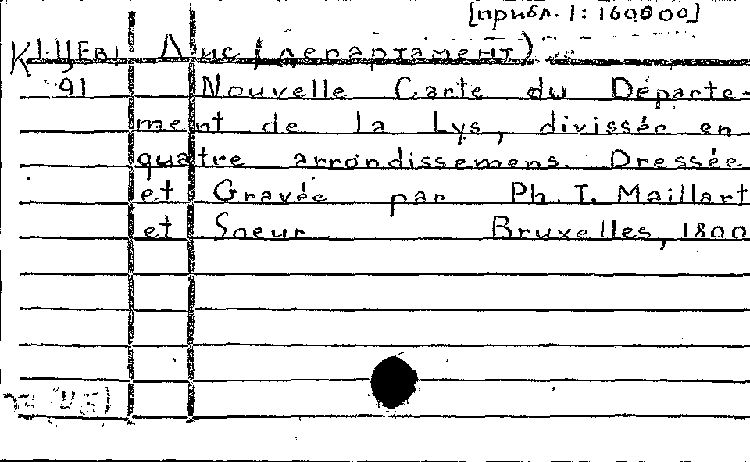 [прибл. 1:160000]
Лис (департамент)
91 Nouvelle Carte du Départe-
ment de la Lys, divissée en
quatre arrondissemens. Dressée
et Gravée par Ph. I. Maillart
et Soeur Bruxelles, 1800